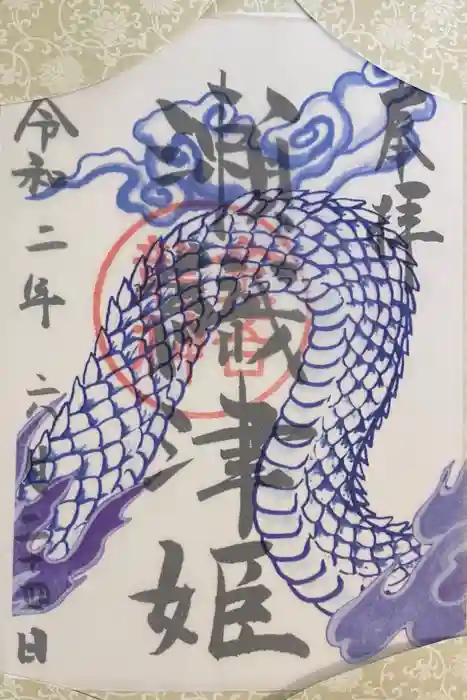 奉拝
瀬織津姫
令和二年 六月二十四日